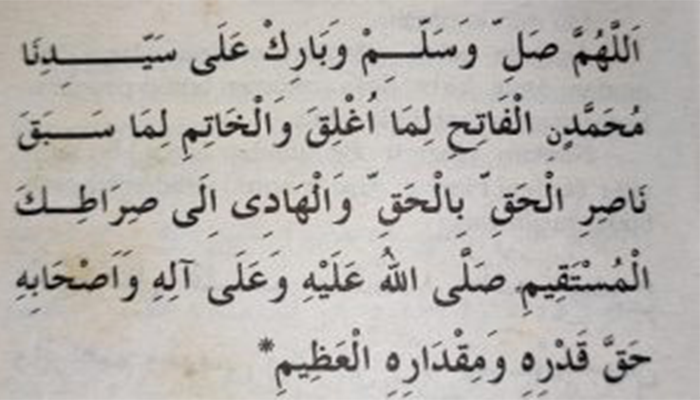 اَللَّهُمَّ صَلِّ وَسَلِّمْ وَبَارِكْ عَلَى سَيِّدِنَا
مُحَمَّدٍنِ الْفَاتِحِ لِمَا اُغْلِقَ وَالْخَاتِمِ لِمَا سَبَقَ
نَاصِرِ الْحَقِّ بِالْحَقِّ وَالْهَادِى اِلَى صِرَاطِكَ
الْمُسْتَقِيمِ صَلَّى اللهُ عَلَيْهِ وَعَلَى آلِهِ وَاَصْحَابِهِ
حَقَّ قَدْرِهِ وَمِقْدَارِهِ الْعَظِيمِ*